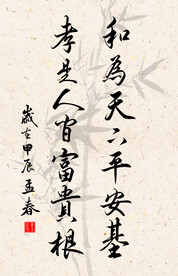 和為天下平安基
孝是人間富貴根
歲在甲辰孟春